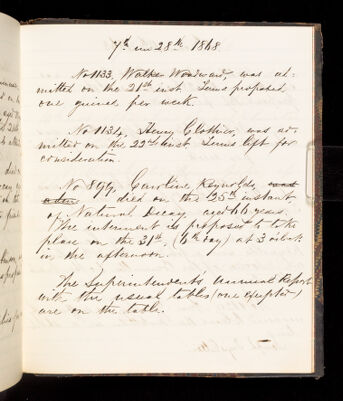 28th 1868
No 1133, Walter Woodward, was ad-
mitted on the 21st inst. Terms proposed
one guinea per week.
No 1134, Henry Clothier, was ad-
mitted on the 22nd inst. Terms left for
consideration.
No 899, Caroline Reynolds,
died on the 25th instant
of Natural Decay, aged 66 years.
The interment is proposed to take
place on the 31st, (6th day) at 3 o'clock
in the afternoon.
The Superintendent's Annual Report
with the usual tables (one excepted)
are on the table.